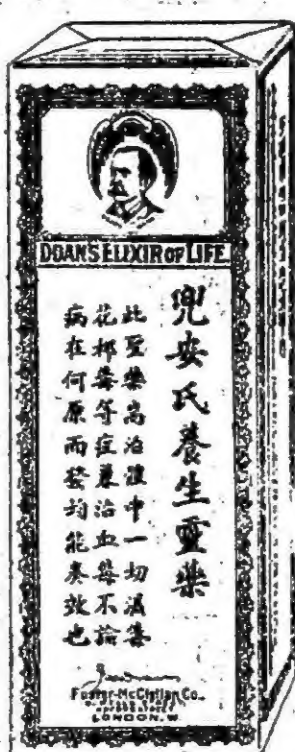 DOAN'S ELIXIR OF LIFE.
兜安氏養生靈藥
此聖藥尚治體中一切濕毒
花柳毒等症兼治血毒不論
病在何原而發均能奏效也
Foster-McClellan Co.
LONDON. W.